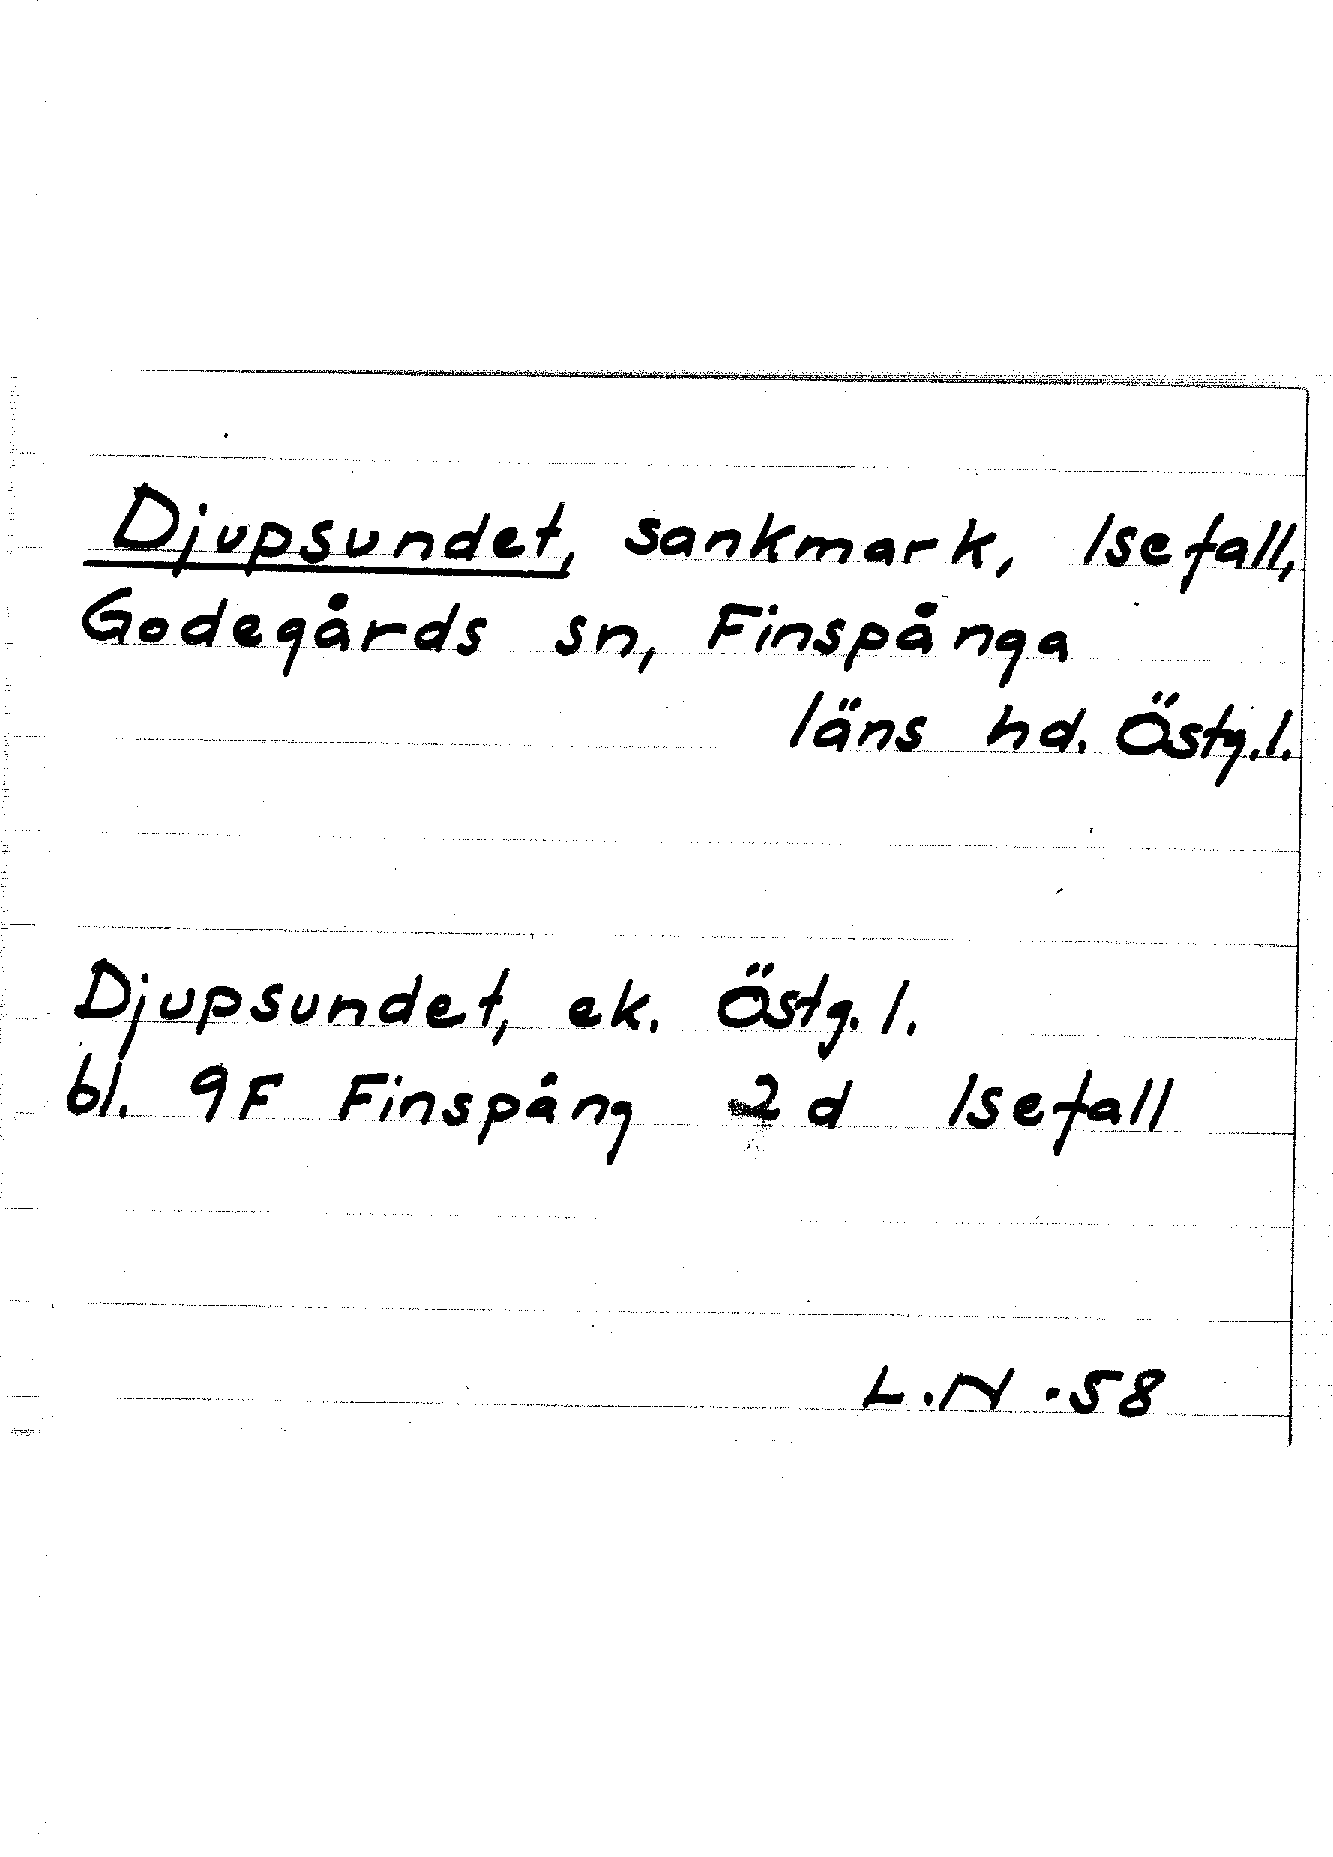 Djupsundet, sankmark, Isefall,
Godegårds sn, Finspånga
läns hd. Östg.l.
Djupsundet, ek. Östg. l.
bl. 9F Finspång 2 d Isefall
L.N .58